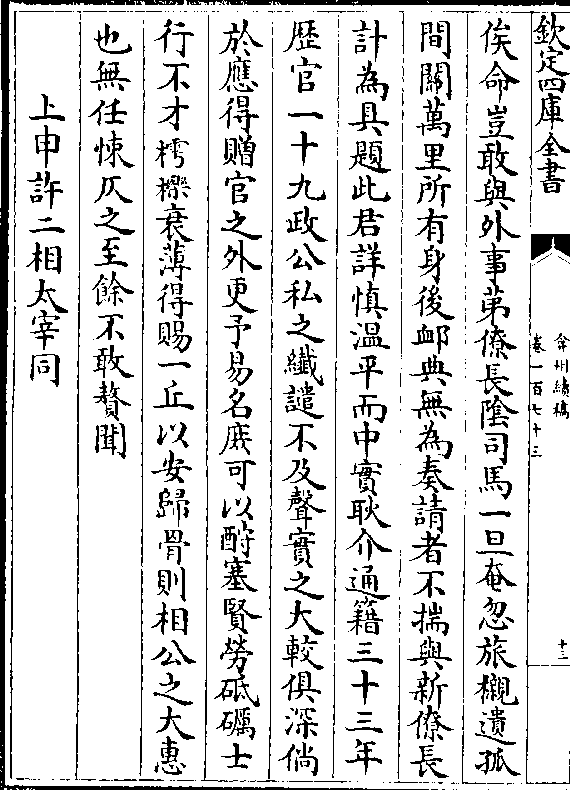 欽定四庫全書
弇州續稿
卷一百七十三
十三
俟命豈敢與外事苐僚長陰司馬一旦奄忽旅櫬遺孤
間關萬里所有身後䘏典無為奏請者不揣與新僚長
計為具題此君詳慎温平而中實耿介通籍三十三年
歴官一十九政公私之纎譴不及聲實之大較俱深倘
於應得贈官之外更予易名庻可以酧塞賢勞砥礪士
行不才樗櫟衰薄得賜一丘以安歸骨則相公之大惠
也無任悚仄之至餘不敢贅聞
上申許二相太宰同